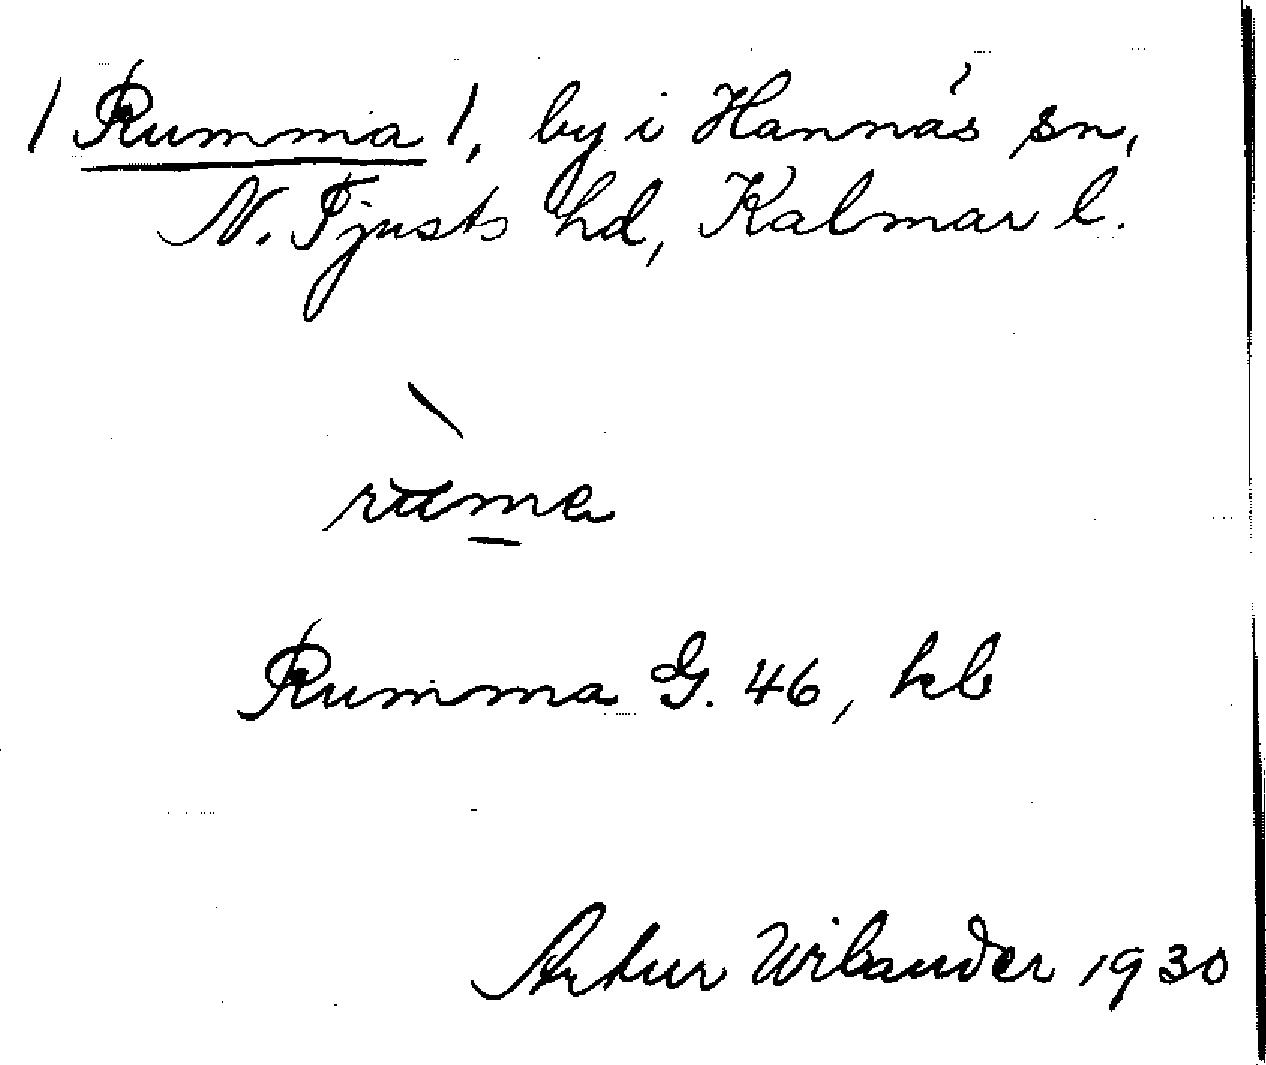 / Rumma /, by i Hannäs sn,
N. Tjusts hd, Kalmar l.
Rumma G. 46, kb
Artur Wilander 1930